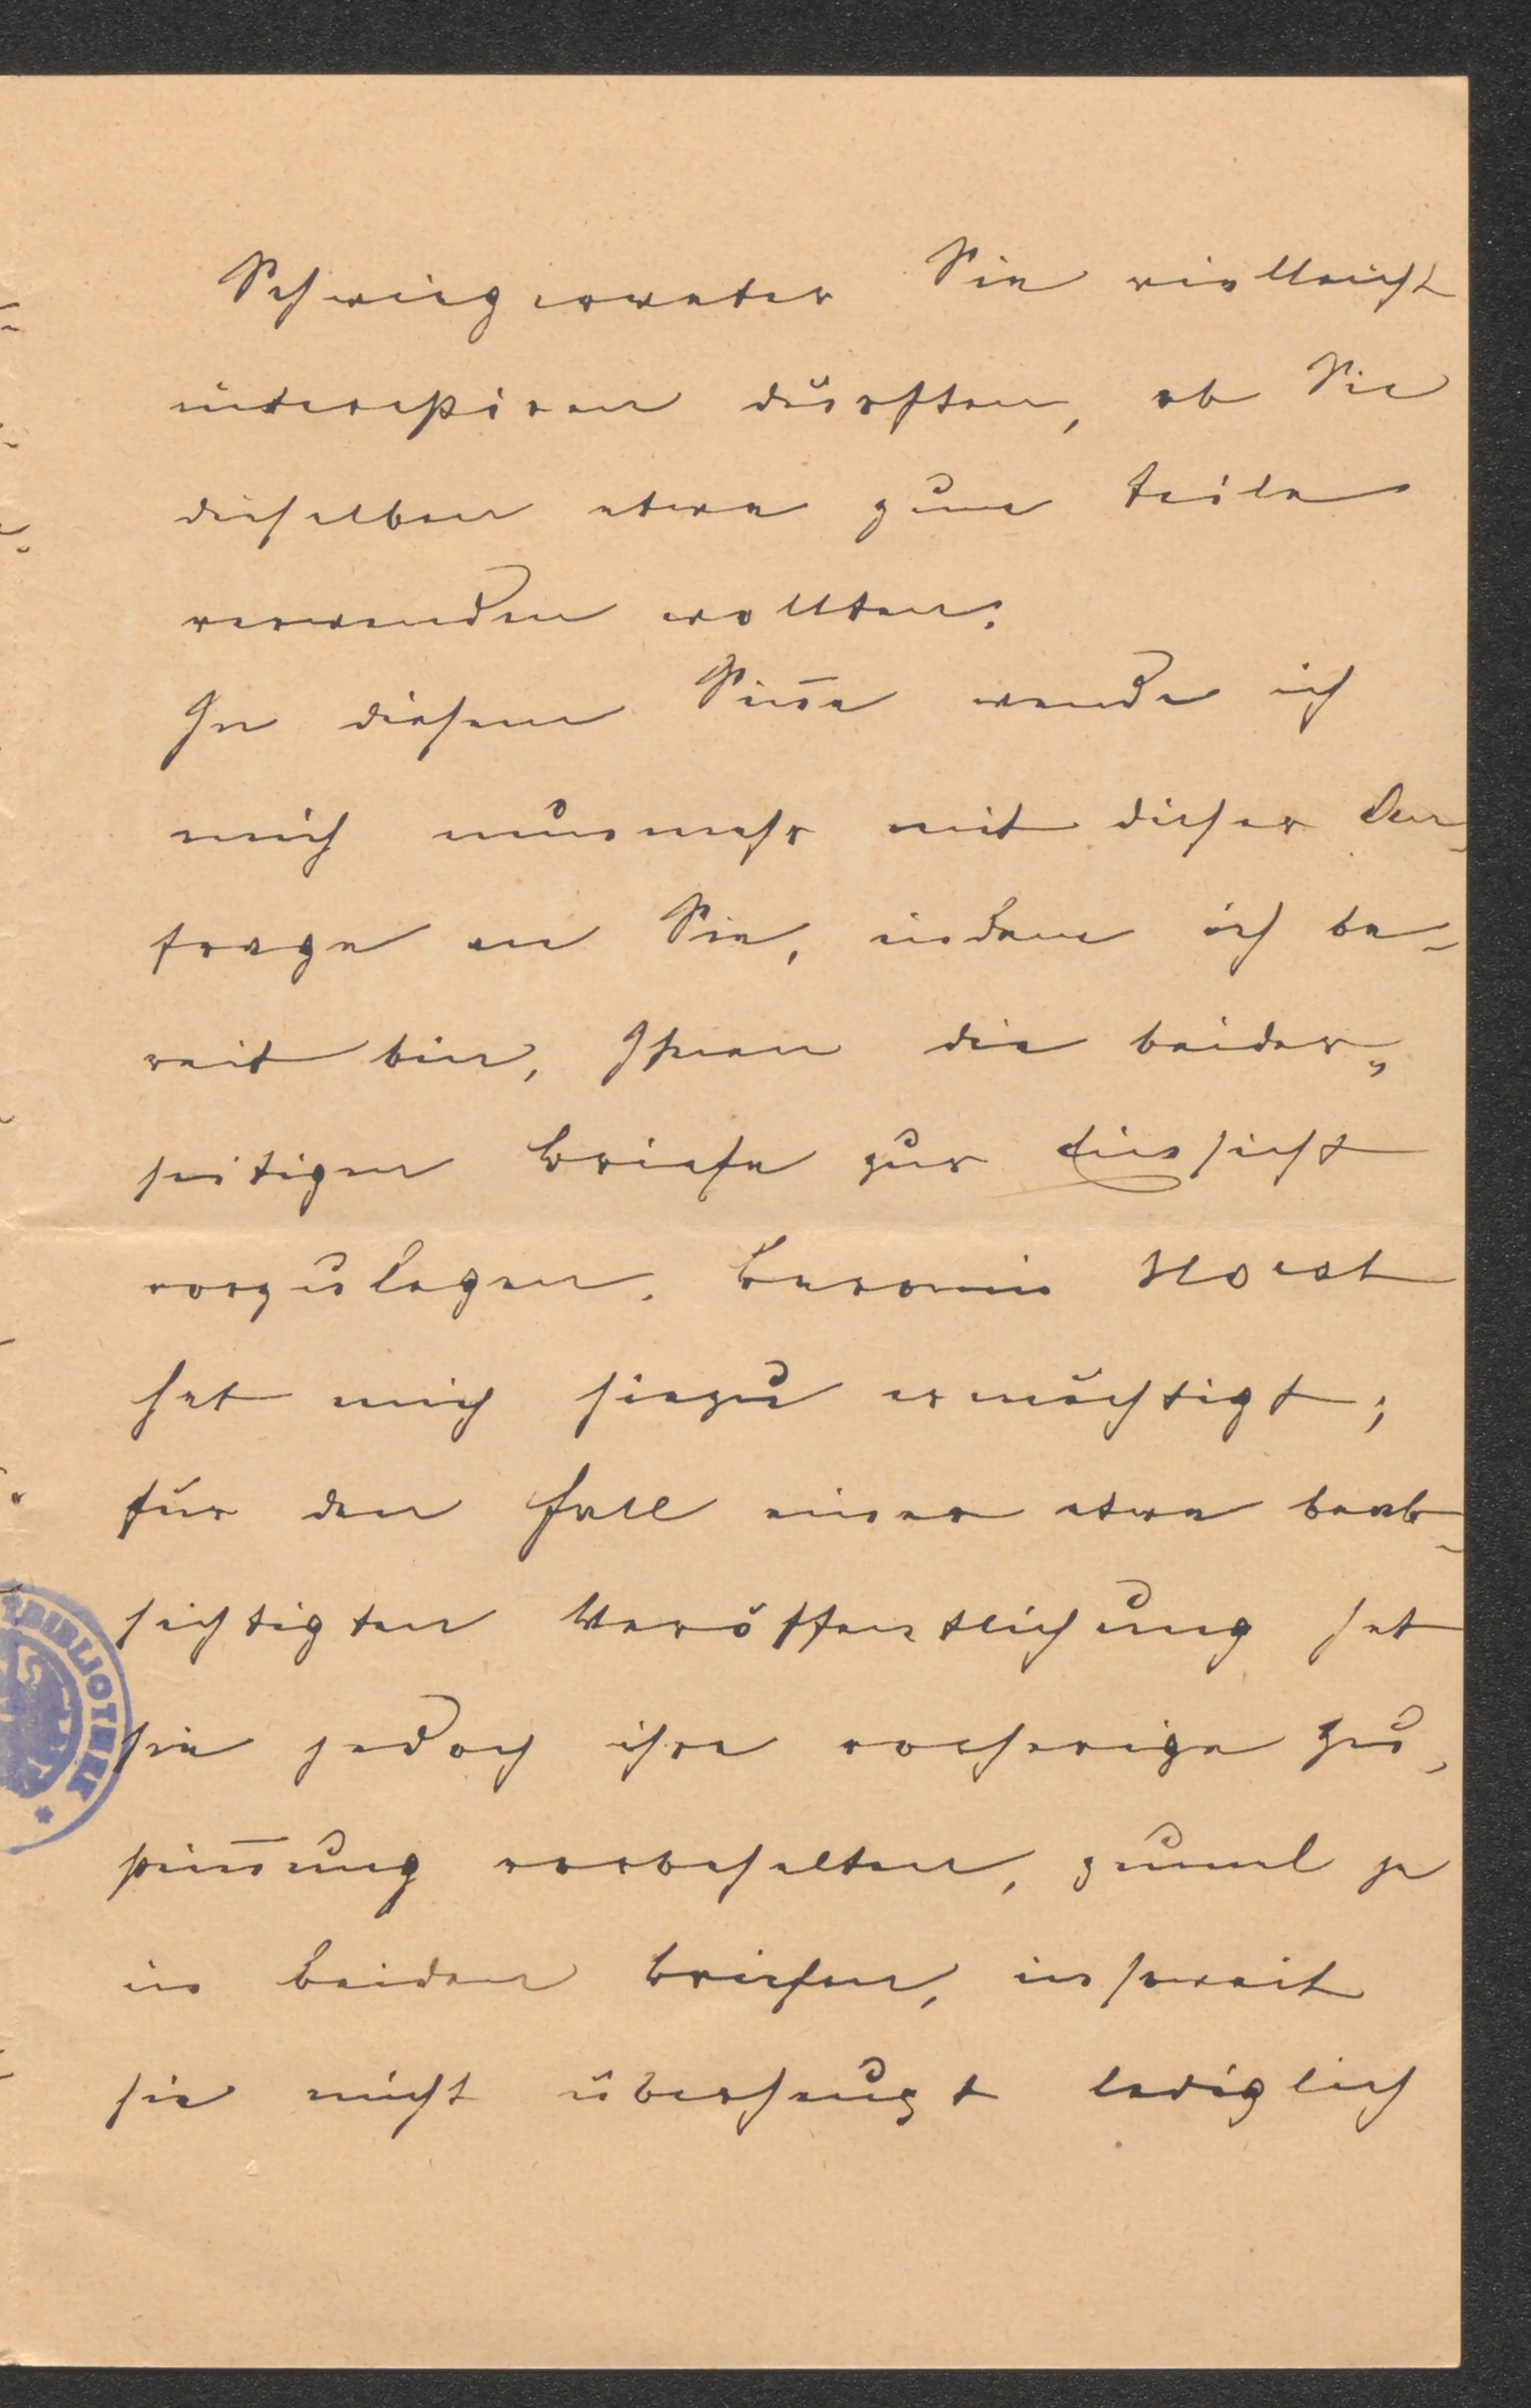 Schwiegervater Sie vielleicht
interessiren dürften, ob Sie
dieselben etwa zum teile
verwenden wollten.
In diesem Sin̄e wende ich
mich nunmehr mit dieser An-
frage an Sie, indem ich be-
reit bin, Ihnen die beider-
seitigen Briefe zur Einsicht
vorzulegen. Baronin Horst
hat mich hiezu ermächtigt;
für den Fall einer etwa beab-
sichtigten Veröffentlichung hat
sie jedoch ihre vorherige Zu-
stim̄ung vorbehalten, zumal ja
in beiden Briefen, insoweit
sie nicht überhaupt lediglich
BIBLIOTHEK